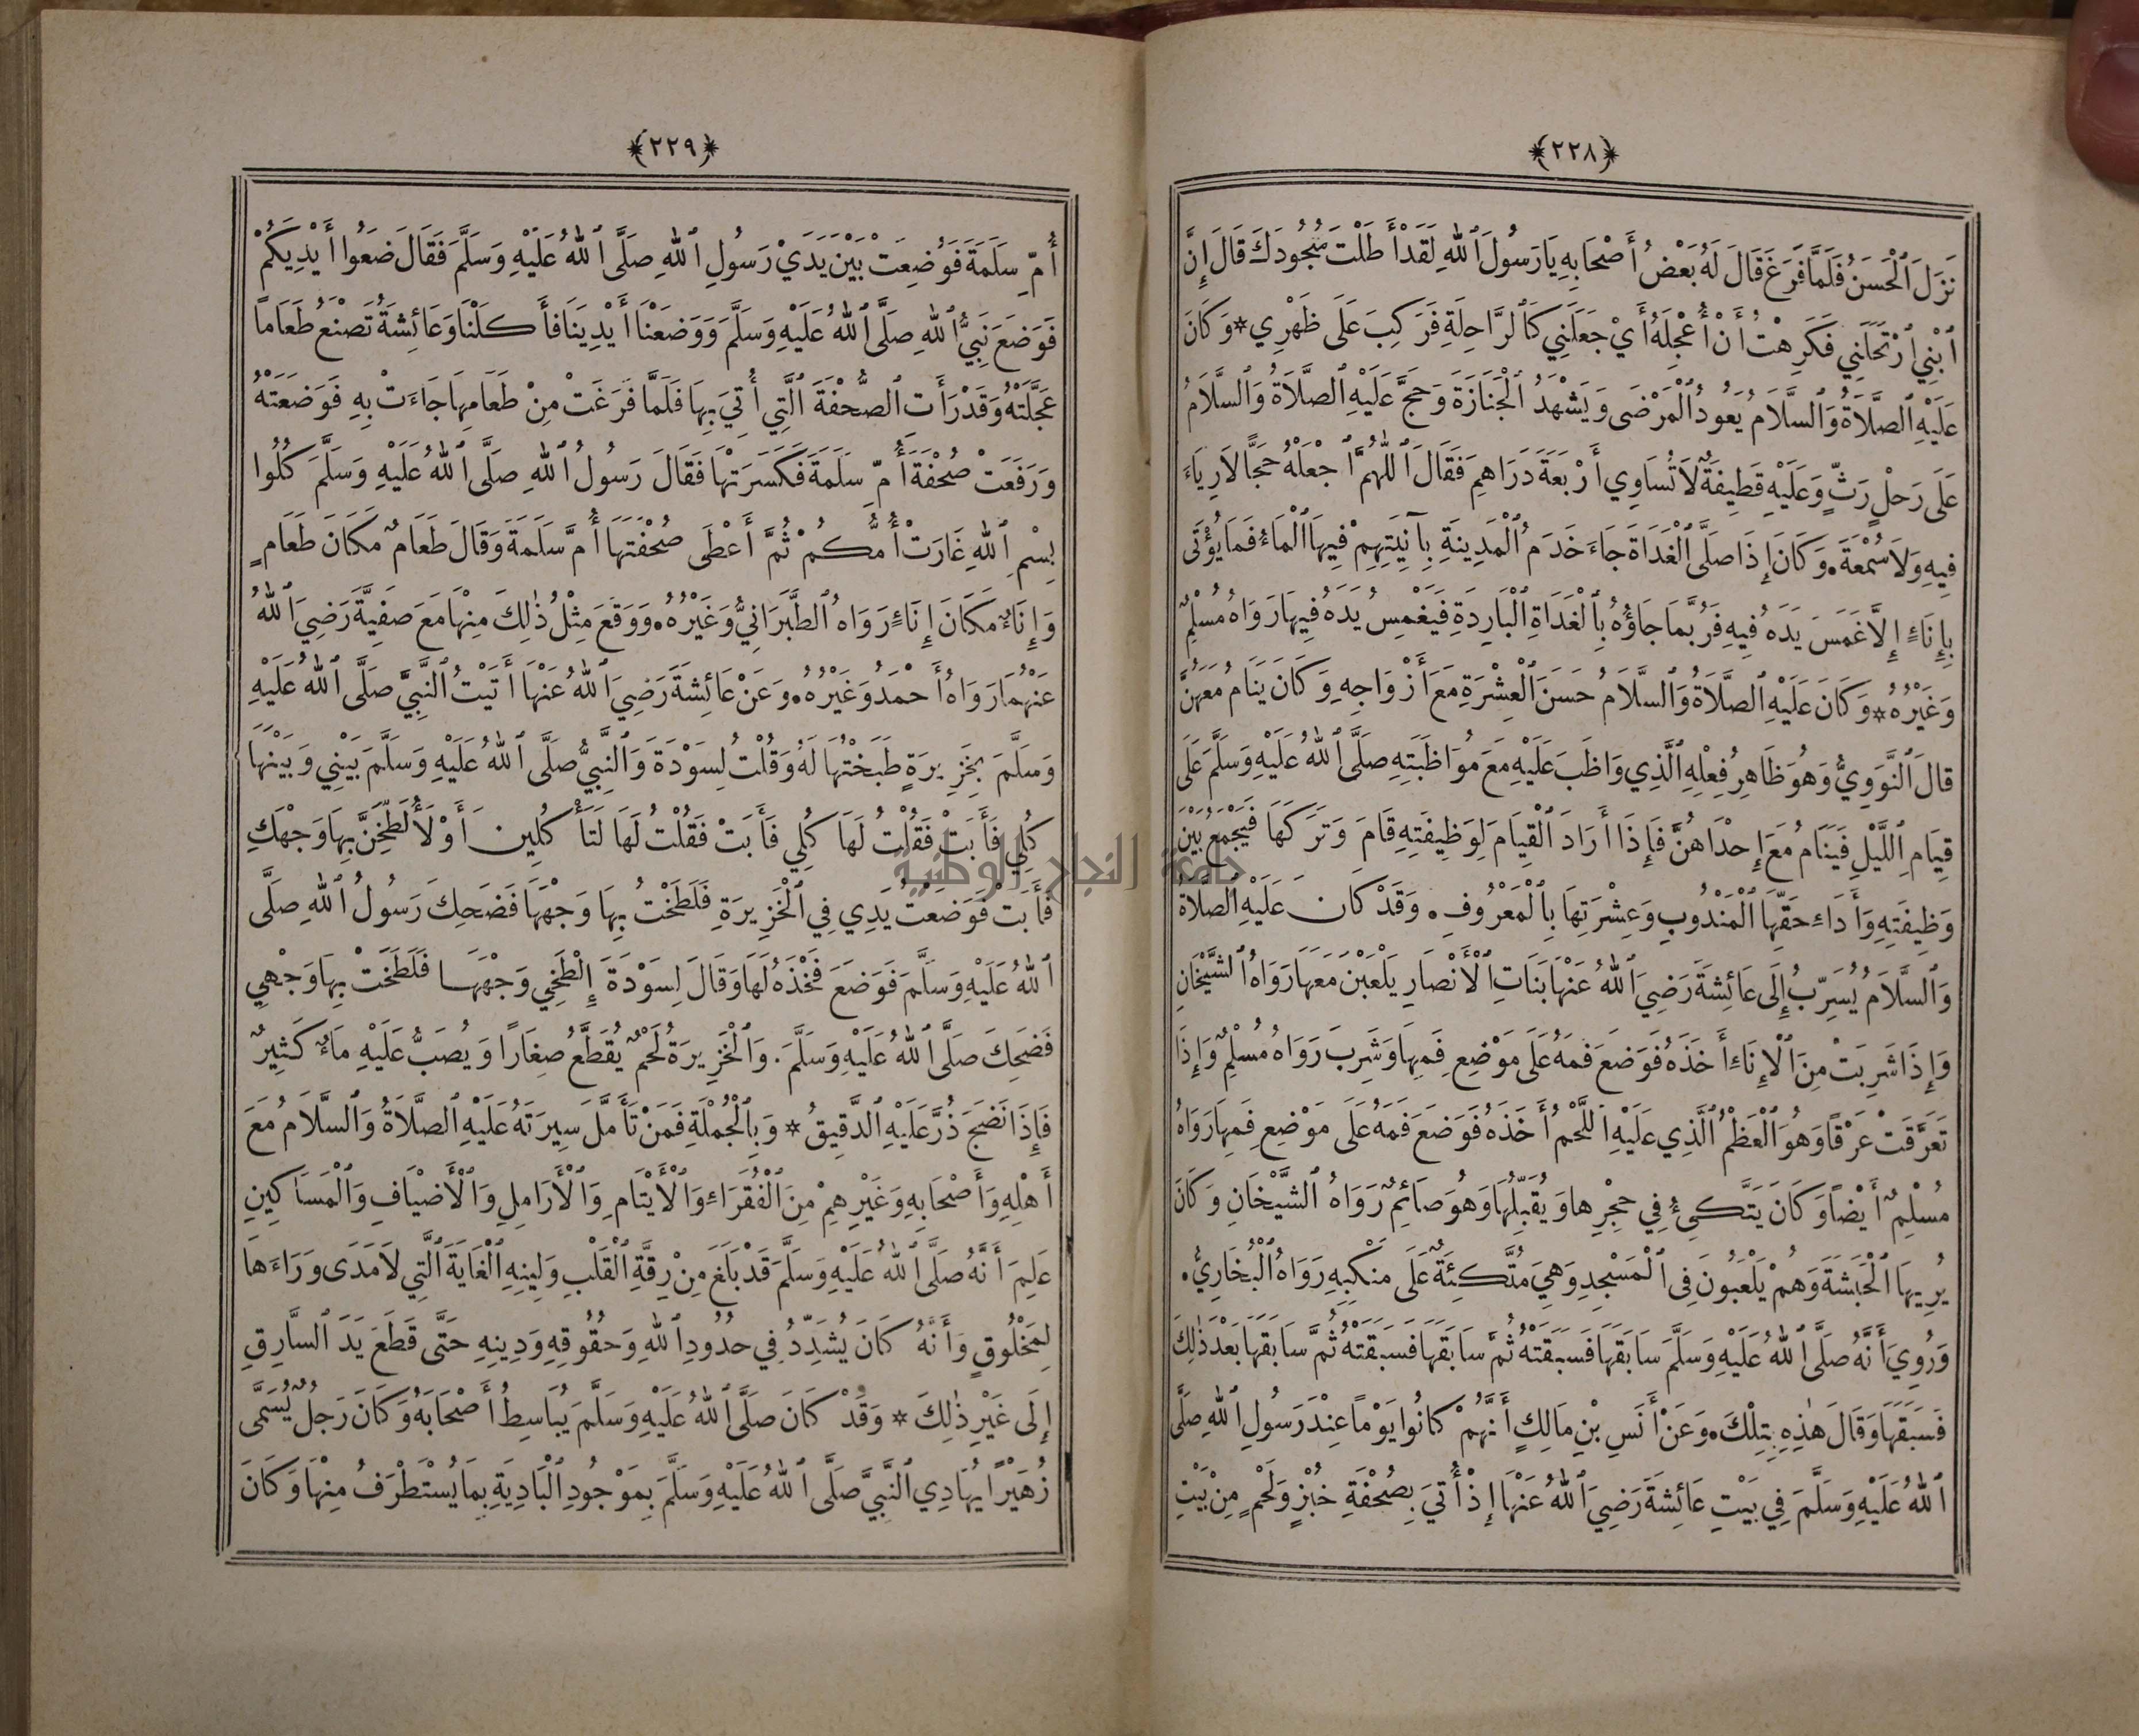 ﴿٢٢٨﴾
نَزَلَ ٱلْحَسَنُ فَلَمَّا فَرَغَ قَالَ لَهُ بَعْضُ أَصْحَابِهِ يَا رَسُولَ ٱللهِ لَقَدْ أَطَلْتَ سُجُودَكَ قَالَ إِنَّ
ٱبْنِي ٱرْتَحَلَنِي فَكَرِهْتُ أَنْ أُعْجِلَهُ أَيْ جَعَلَنِي كَٱلرَّاحِلَةِ فَرَكِبَ عَلَى ظَهْرِي * وَكَانَ
عَلَيْهِ ٱلصَّلَاةُ وَٱلسَّلَامُ يَعُودُ ٱلْمَرْضَى وَيَشْهَدُ ٱلْجَنَازَةَ وَحَجَّ عَلَيْهِ ٱلصَّلَاةُ وَٱلسَّلَامُ
عَلَى رَحْلٍ رَثٍّ وَعَلَيْهِ قَطِيفَةٌ لَا تُسَاوِي أَرْبَعَةَ دَرَاهِمَ فَقَالَ ٱللَّهُمَّ ٱجْعَلْهُ حَجًّا لَا رِيَاءَ
فِيهِ وَلَا سُمْعَةَ. وَكَانَ إِذَا صَلَّى ٱلْغَدَاةَ جَاءَ خَدَمُ ٱلْمَدِينَةِ بِآنِيَتِهِمْ فِيهَا ٱلْمَاءُ فَمَا يُؤْتَى
بِإِنَاءٍ إِلَّا غَمَسَ يَدَهُ فِيهِ فَرُبَّمَا جَاؤُهُ بِٱلْغَدَاةِ ٱلْبَارِدَةِ فَيَغْمِسُ يَدَهُ فِيهَا رَوَاهُ مُسْلِمٌ
وَغَيْرُهُ * وَكَانَ عَلَيْهِ ٱلصَّلَاةُ وَٱلسَّلَامُ حَسَنَ ٱلْعِشْرَةِ مَعَ أَزْوَاجِهِ وَكَانَ يَنَامُ مَعَهُنَّ
قَالَ ٱلنَّوَوِيُّ وَهُوَ ظَاهِرُ فِعْلِهِ ٱلَّذِي وَاظَبَ عَلَيْهِ مَعَ مُوَاظَبَتِهِ صَلَّى ٱللهُ عَلَيْهِ وَسَلَّمَ عَلَى
قِيَامِ ٱللَّيْلِ فَيَنَامُ مَعَ إِحْدَاهُنَّ فَإِذَا أَرَادَ ٱلْقِيَامَ لِوَظِيفَتِهِ قَامَ وَتَرَكَهَا فَيَجْمَعُ بَيْنَ
وَظِيفَتِهِ وَأَدَاءِ حَقِّهَا ٱلْمَنْدُوبِ وَعِشْرَتِهَا بِٱلْمَعْرُوفِ. وَقَدْ كَانَ عَلَيْهِ ٱلصَّلَاةُ
وَٱلسَّلَامُ يُسَرِّبُ إِلَى عَائِشَةَ رَضِيَ ٱللهُ عَنْهَا بَنَاتِ ٱلْأَنْصَارِ يَلْعَبْنَ مَعَهَا رَوَاهُ ٱلشَّيْخَانِ
وَإِذَا شَرِبَتْ مِنَ ٱلْإِنَاءِ أَخَذَهُ فَوَضَعَ فَمَهُ عَلَى مَوْضِعِ فَمِهَا وَشَرِبَ رَوَاهُ مُسْلِمٌ وَإِذَا
تَعَرَّقَتْ عَرْقًا وَهُوَ ٱلْعَظْمُ ٱلَّذِي عَلَيْهِ ٱللَّحْمُ أَخَذَهُ فَوَضَعَ فَمَهُ عَلَى مَوْضِعِ فَمِهَا رَوَاهُ
مُسْلِمٌ أَيْضًا وَكَانَ يَتَّكِئُ فِي حِجْرِهَا وَيُقَبِّلُهَا وَهُوَ صَائِمٌ رَوَاهُ ٱلشَّيْخَانِ وَكَانَ
يُرِيهَا ٱلْحَبَشَةَ وَهُمْ يَلْعَبُونَ فِى ٱلْمَسْجِدِ وَهِيَ مُتَّكِئَةٌ عَلَى مَنْكِبِهِ رَوَاهُ ٱلْبُخَارِيُّ.
وَرُوِيَ أَنَّهُ صَلَّى ٱللهُ عَلَيْهِ وَسَلَّمَ سَابَقَهَا فَسَبَقَتْهُ ثُمَّ سَابَقَهَا فَسَبَقَتْهُ ثُمَّ سَابَقَهَا بَعْدَ ذٰلِكَ
فَسَبَقَهَا وَقَالَ هٰذِهِ بِتِلْكَ. وَعَنْ أَنَسِ بْنِ مَالِكٍ أَنَّهُمْ كَانُوا يَوْمًا عِنْدَ رَسُولِ ٱللهِ صَلَّى
ٱللهُ عَلَيْهِ وَسَلَّمَ فِي بَيْتِ عَائِشَةَ رَضِيَ ٱللهُ عَنْهَا إِذْ أُتِيَ بِصُحْفَةِ خُبْزٍ وَلَحْمٍ مِنْ بَيْتِ
﴿٢٢٩﴾
أُمِّ سَلَمَةَ فَوُضِعَتْ بَيْنَ يَدَيْ رَسُولِ ٱللهِ صَلَّى ٱللهُ عَلَيْهِ وَسَلَّمَ فَقَالَ ضَعُوا أَيْدِيَكُمْ
فَوَضَعَ نَبِيُّ ٱللهِ صَلَّى ٱللهُ عَلَيْهِ وَسَلَّمَ وَوَضَعْنَا أَيْدِيَنَا فَأَكَلْنَا وَعَائِشَةُ تَصْنَعُ طَعَامًا
عَجَّلَتْهُ وَقَدْ رَأَتِ ٱلصُّحْفَةَ ٱلَّتِي أُتِيَ بِهَا فَلَمَّا فَرَغَتْ مِنْ طَعَامِهَا جَاءَتْ بِهِ فَوَضَعَتْهُ
وَرَفَعَتْ صُحْفَةَ أُمِّ سَلَمَةَ فَكَسَرَتْهَا فَقَالَ رَسُولُ ٱللهِ صَلَّى ٱللهُ عَلَيْهِ وَسَلَّمَ كُلُوا
بِسْمِ ٱللهِ غَارَتْ أُمُّكُمْ ثُمَّ أَعْطَى صُحْفَتَهَا أُمَّ سَلَمَةَ وَقَالَ طَعَامٌ مَكَانَ طَعَامٍ
وَإِنَاءٌ مَكَانَ إِنَاءٍ رَوَاهُ ٱلطَّبَرَانِيُّ وَغَيْرُهُ. وَوَقَعَ مِثْلُ ذٰلِكَ مِنْهَا مَعَ صَفِيَّةَ رَضِيَ ٱللهُ
عَنْهُمَا رَوَاهُ أَحْمَدُ وَغَيْرُهُ. وَعَنْ عَائِشَةَ رَضِيَ ٱللهُ عَنْهَا أَتَيْتُ ٱلنَّبِيَّ صَلَّى ٱللهُ عَلَيْهِ
وَسَلَّمَ بِخَزِيرَةٍ طَبَخْتُهَا لَهُ وَقُلْتُ لِسَوْدَةَ وَٱلنَّبِيُّ صَلَّى ٱللهُ عَلَيْهِ وَسَلَّمَ بَيْنِي وَبَيْنَهَا
كُلِي فَأَبَتْ فَقُلْتُ لَهَا كُلِي فَأَبَتْ فَقُلْتُ لَهَا لَتَأْكُلِينَ أَوْ لَأُلَطِّخَنَّ بِهَا وَجْهَكِ
فَأَبَتْ فَوَضَعْتُ يَدِي فِي ٱلْخَزِيرَةِ فَلَطَخْتُ بِهَا وَجْهَهَا فَضَحِكَ رَسُولُ ٱللهِ صَلَّى
ٱللهُ عَلَيْهِ وَسَلَّمَ فَوَضَعَ فَخْذَهُ لَهَا وَقَالَ لِسَوْدَةَ إِلْطَخِي وَجْهَهَا فَلَطَخَتْ بِهَا وَجْهِي
فَضَحِكَ صَلَّى ٱللهُ عَلَيْهِ وَسَلَّمَ. وَٱلْخَزِيرَةُ لَحْمٌ يُقَطَّعُ صِغَارًا وَيُصَبُّ عَلَيْهِ مَاءٌ كَثِيرٌ
فَإِذَا نَضِجَ ذُرَّ عَلَيْهِ ٱلدَّقِيقُ * وَبِٱلْجُمْلَةِ فَمَنْ تَأَمَّلَ سِيرَتَهُ عَلَيْهِ ٱلصَّلَاةُ وَٱلسَّلَامُ مَعَ
أَهْلِهِ وَأَصْحَابِهِ وَغَيْرِهِمْ مِنَ ٱلْفُقَرَاءِ وَٱلْأَيْتَامِ وَٱلْأَرَامِلِ وَٱلْأَضْيَافِ وَٱلْمَسَاكِينِ
عَلِمَ أَنَّهُ صَلَّى ٱللهُ عَلَيْهِ وَسَلَّمَ قَدْ بَلَغَ مِنْ رِقَّةِ ٱلْقَلْبِ وَلِينِهِ ٱلْغَايَةَ ٱلَّتِي لَا مَدَى وَرَاءَهَا
لِمَخْلُوقٍ وَأَنَّهُ كَانَ يُشَدِّدُ فِي حُدُودِ ٱللهِ وَحُقُوقِهِ وَدِينِهِ حَتَّى قَطَعَ يَدَ ٱلسَّارِقِ
إِلَى غَيْرِ ذٰلِكَ * وَقَدْ كَانَ صَلَّى ٱللهُ عَلَيْهِ وَسَلَّمَ يُبَاسِطُ أَصْحَابَهُ وَكَانَ رَجُلٌ يُسَمَّى
زُهَيْرًا يُهَادِي ٱلنَّبِيَّ صَلَّى ٱللهُ عَلَيْهِ وَسَلَّمَ بِمَوْجُودِ ٱلْبَادِيَةِ بِمَا يُسْتَطْرَفُ مِنْهَا وَكَانَ
جامعة النجاح الوطنية